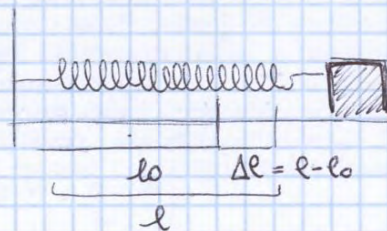 l₀ Δl = l-l₀
l